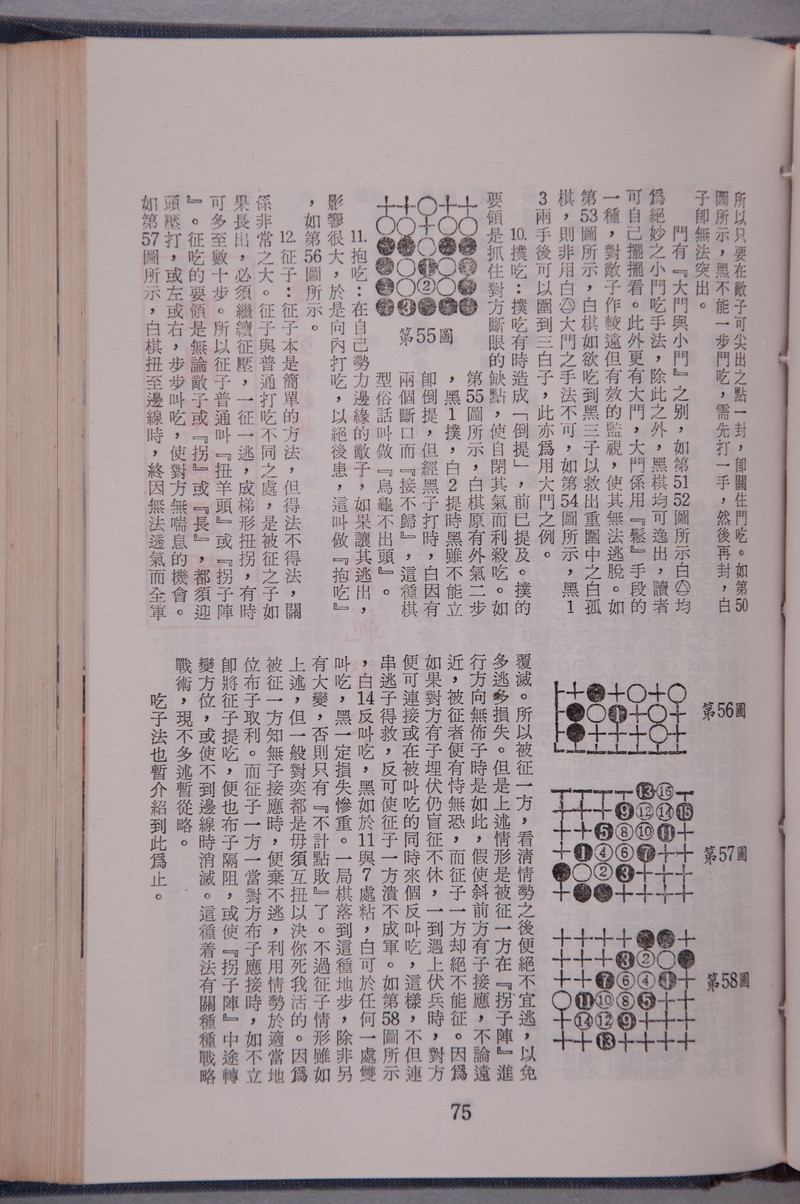 所以只要在敵子可尖出之點一封，卽關住門吃。如第50
圖所示，黑不能一步門吃，需先打一手，然後再封，白
子卽無法突出。
門有『大門與小門』之別，如第51 52圖所示白△均
爲絕妙之小門吃手法，除此之外，黑棋均可逸出，讀者
可自己擺擺看。此外更有大門，大門係用『鬆』手段的
一種，對敵子作較遠但有效的監視，使其無法逃脫。如
第53圖所示，白棋如欲吃到黑三子以救出重圍中之白孤
棋，則非用白△大門之手法不可，如第54圖所示，黑1
3兩手後可以圍到三白子，此亦爲用大門之例。
10.撲吃：撲吃有時造成「倒提」，前已提及。撲的
要領是抓住對方斷眼的缺點，使自閉其氣而利殺吃。如
第55圖所示，白棋原有外氣二步
，黑1撲，白2提時黑雖不能立
卽倒提，但經黑子打時，白因有
兩個斷口而『接不歸』，這種棋
型俗話叫做『烏龜不出頭』。
第55圖
11.抱吃：在自己勢力邊緣的敵子，如果讓其逃出，
影響很大，於是向內打吃，以絕後患，這叫做『抱吃』
，如第56圖所示。
12.征子：征子本是簡單的方法，但得法不得法，關
係非常之大。征子與普通打吃不同之處，是被征之子如
果長出，必須繼續征壓，一征一逃，成梯形扭拐，有時
可多至數十步。所以征子普通叫『扭羊頭』或『拐子陣
』。征吃的要領是無論敵子或『拐』或『長』，都須迎
頭壓打，或左或右，步步叫吃，使對方無喘息的機會。
如第57圖所示，白棋扭至邊線時，終因無法透氣而全軍
第56圖
第57圖
第58圖
覆滅。所以被征一方，看清情勢之後便絕不宜逃，以免
多逃多損失。但是上述情形是被征一方在『拐子陣』進
行方向無佈子時是如此，假使斜前方有子接應，不論遠
近，被征者便有恃無恐，而征子一方却絕不能征。因爲
如果對方有子埋伏仍盲征不休，一到遇上伏兵時，對方
便可連接或在被叫吃的同時來個反叫吃，這樣，不但連
串逃子得救，反可使征子一方潰不成軍。如第58圖所示
，白14反叫吃，黑如於11與7處粘，白可於任何一處雙
叫吃，黑一定損失慘重。一局棋落到這種地步，除非另
有大變，否則只有『不計點敗』了。不過征子情形雖如
上述，但一般對奕都是毋須互扭以決你死我活的。因爲
被征一方知無子接應時，便棄不逃，利用情勢於適當地
位布子取利。而征子一方一當對方布子應接時，如不立
卽將征子提吃，便也布子隔阻，或使『拐子陣』中途轉
變方位，或使不到邊線時消滅。這種着法有關種種戰略
戰術，現不多述暫從略。
吃子法也暫介紹到此爲止。
75